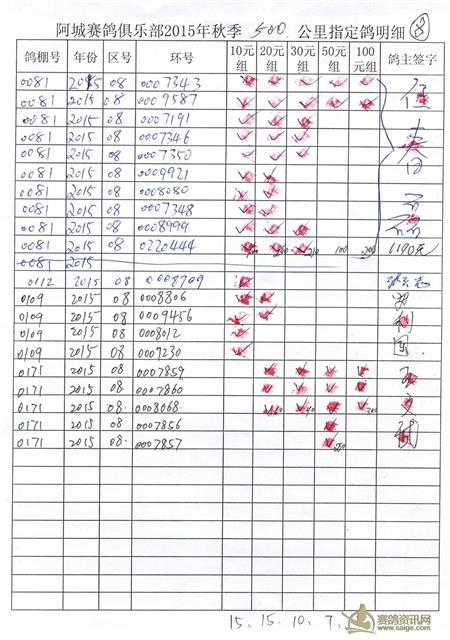 阿城赛鸽俱乐部2015年秋季 500 公里指定鸽明细 ⑧
鸽棚号 年份 区号 环号 10元组 20元组 30元组 50元组 100元组 鸽主签字
0081 2015 08 0007343
0081 2015 08 0009587
0081 2015 08 0007191
0081 2015 08 0007346
0081 2015 08 0007350
0081 2015 08 0009921
0081 2015 08 0008080
0081 2015 08 0007348
0081 2015 08 0008999
0081 2015 08 0220444 100 1190元
0081 2015
0112 2015 08 0008709
0109 2015 08 0008806
0109 2015 08 0009456
0109 2015 08 0008012
0109 2015 08 0007230
0171 2015 08 0007859
0171 2015 08 0007860
0171 2015 08 0008068
0171 2015 08 0007856
0171 2015 08 0007857
15. 15. 10. 7.
赛鸽资讯网
www.saige.com